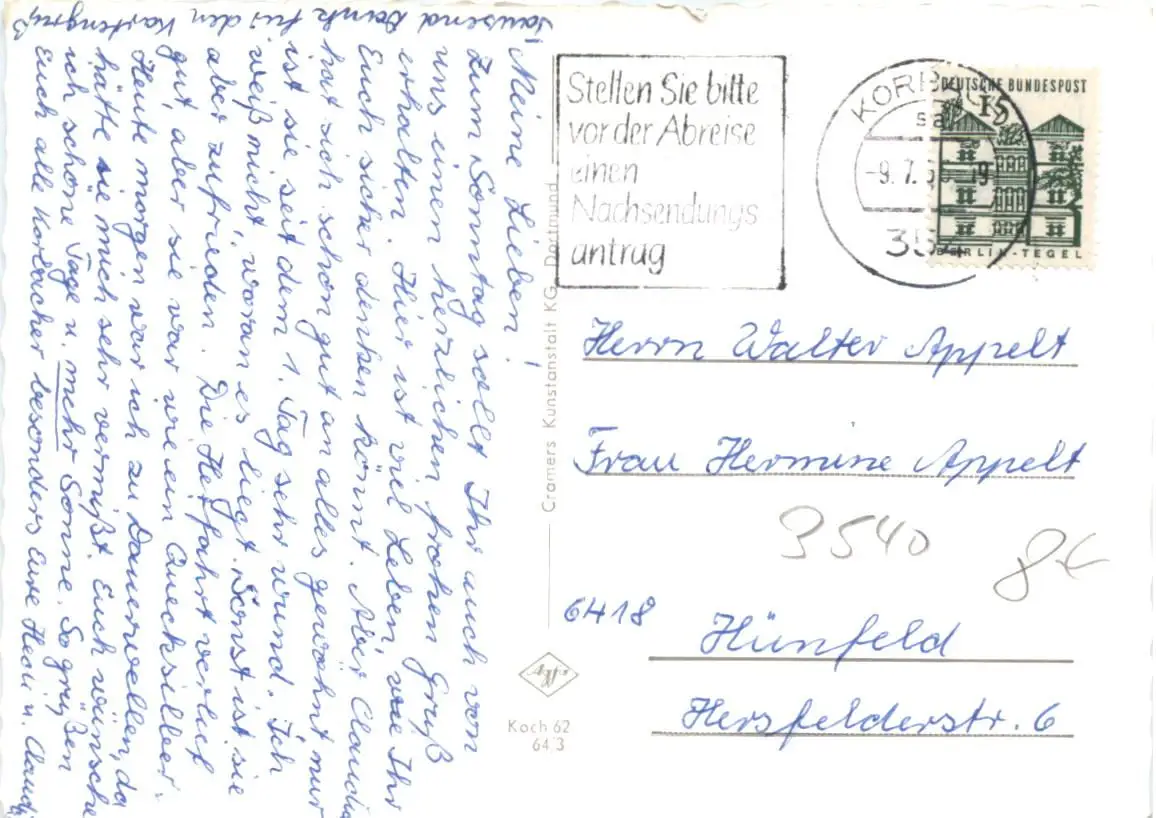 Tausend Dank für den Kartengruß
Meine Lieben!
Zum Sonntag sollt Ihr auch von
uns einen herzlichen frohen Gruß
erhalten. Hier ist viel Leben, wie Ihr
Euch sicher denken könnt. Aber Claudia
hat sich schon gut an alles gewöhnt nur
ist sie seit dem 1. Tag sehr wund. Ich
weiß nicht, woran es liegt. Sonst ist sie
aber zufrieden. Die Herfahrt verlief
gut, aber sie war wie ein Quecksilber.
Heute morgen war ich zu Dauerwellen, da
hätte sie mich sehr vermißt. Euch wünsche
ich schöne Tage u. mehr Sonne. So grüßen
Euch alle Korbacher besonders Eure Hedi u. Claudi
Cramers Kunstanstalt KG, Dortmund
Agfa
Koch 62
64/3
Stellen Sie bitte
vor der Abreise
einen
Nachsendungs
antrag
KORBACH
-9.7. 19
354
DEUTSCHE BUNDESPOST
15
BERLIN-TEGEL
Herrn Walter Appelt
Frau Hermine Appelt
3540
8€
6418 Hünfeld
Hersfelderstr. 6